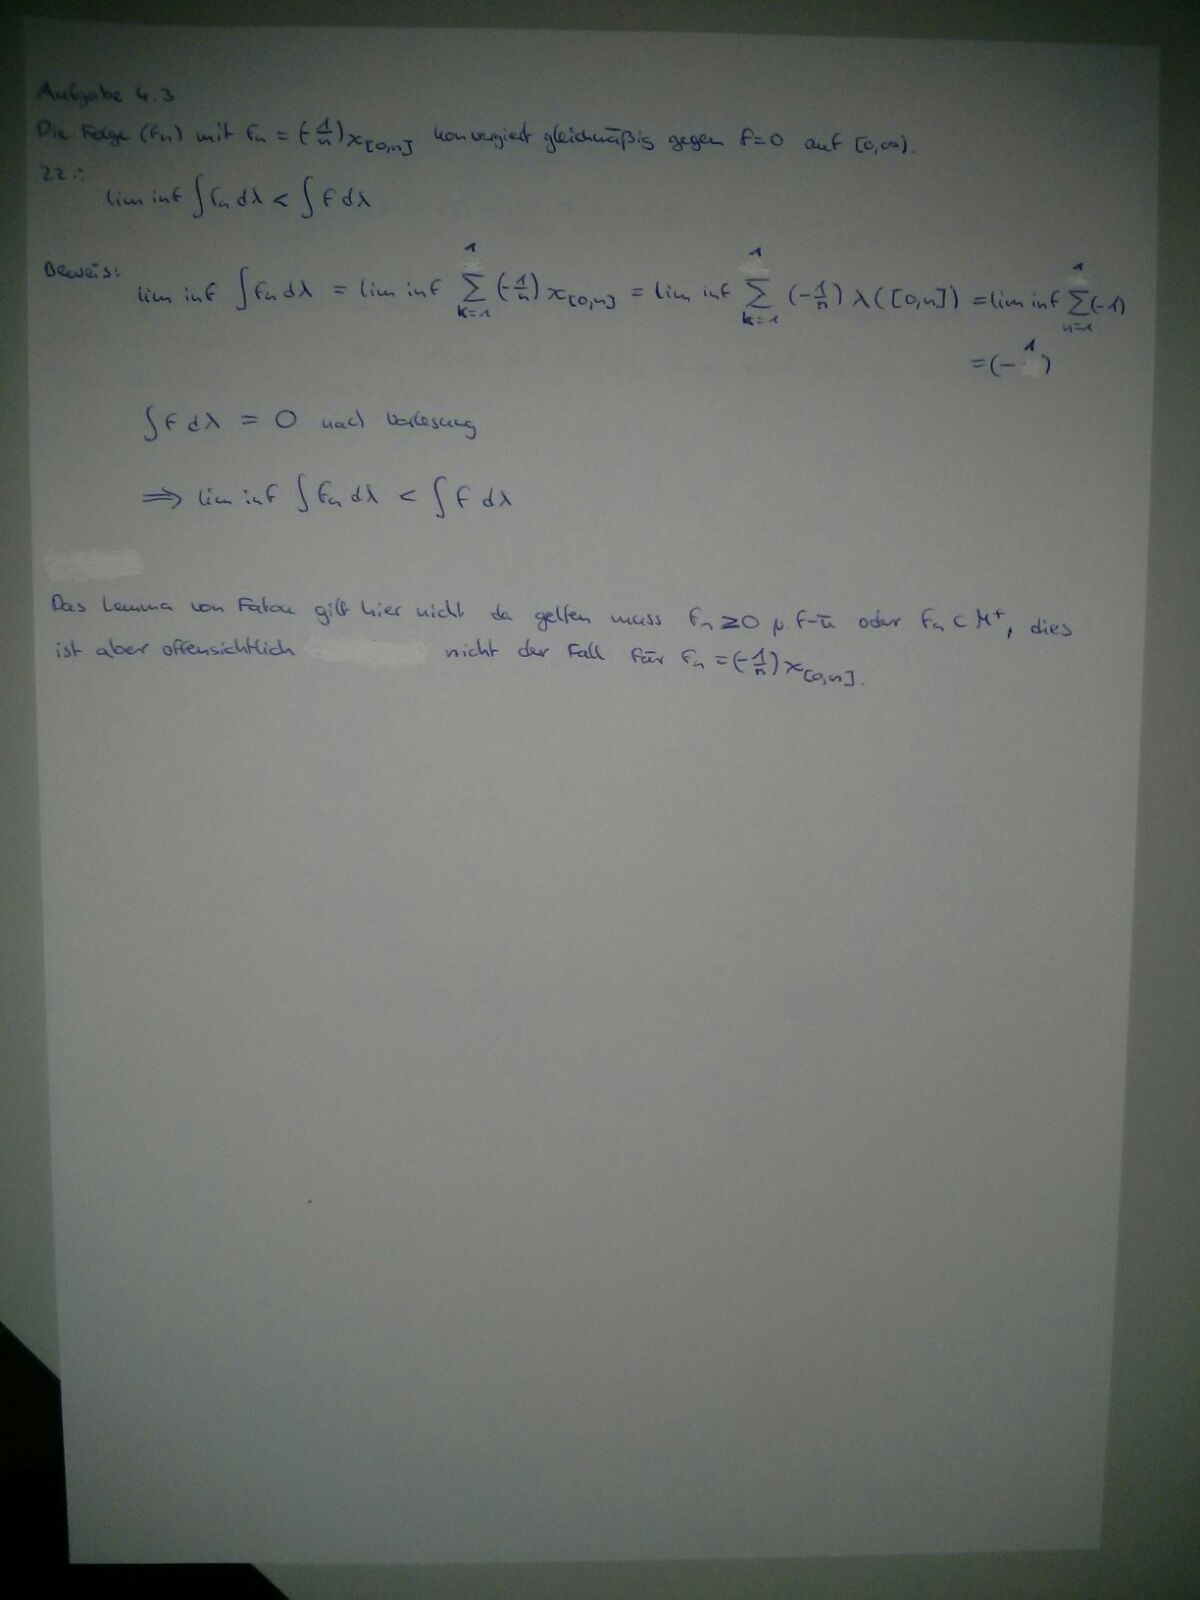 Aufgabe 4.3
Die Folge (fn) mit fn = (-1/n) χ[0,n] konvergiert gleichmäßig gegen f=0 auf [0,∞).
zz.:
lim inf ∫ fn dλ < ∫ f dλ
Beweis: lim inf ∫ fn dλ = lim inf ∑_{k=1}^{1} (-1/n) χ[0,n] = lim inf ∑_{k=1}^{1} (-1/n) λ([0,n]) = lim inf ∑_{n=1}^{1} (-1)
= (-1)
∫ f dλ = 0 nach Vorlesung
⟹ lim inf ∫ fn dλ < ∫ f dλ
Das Lemma von Fatou gilt hier nicht da gelten muss fn ≥ 0 μ. f-ü oder fn ⊂ M⁺, dies
ist aber offensichtlich nicht der Fall für fn = (-1/n) χ[0,n].